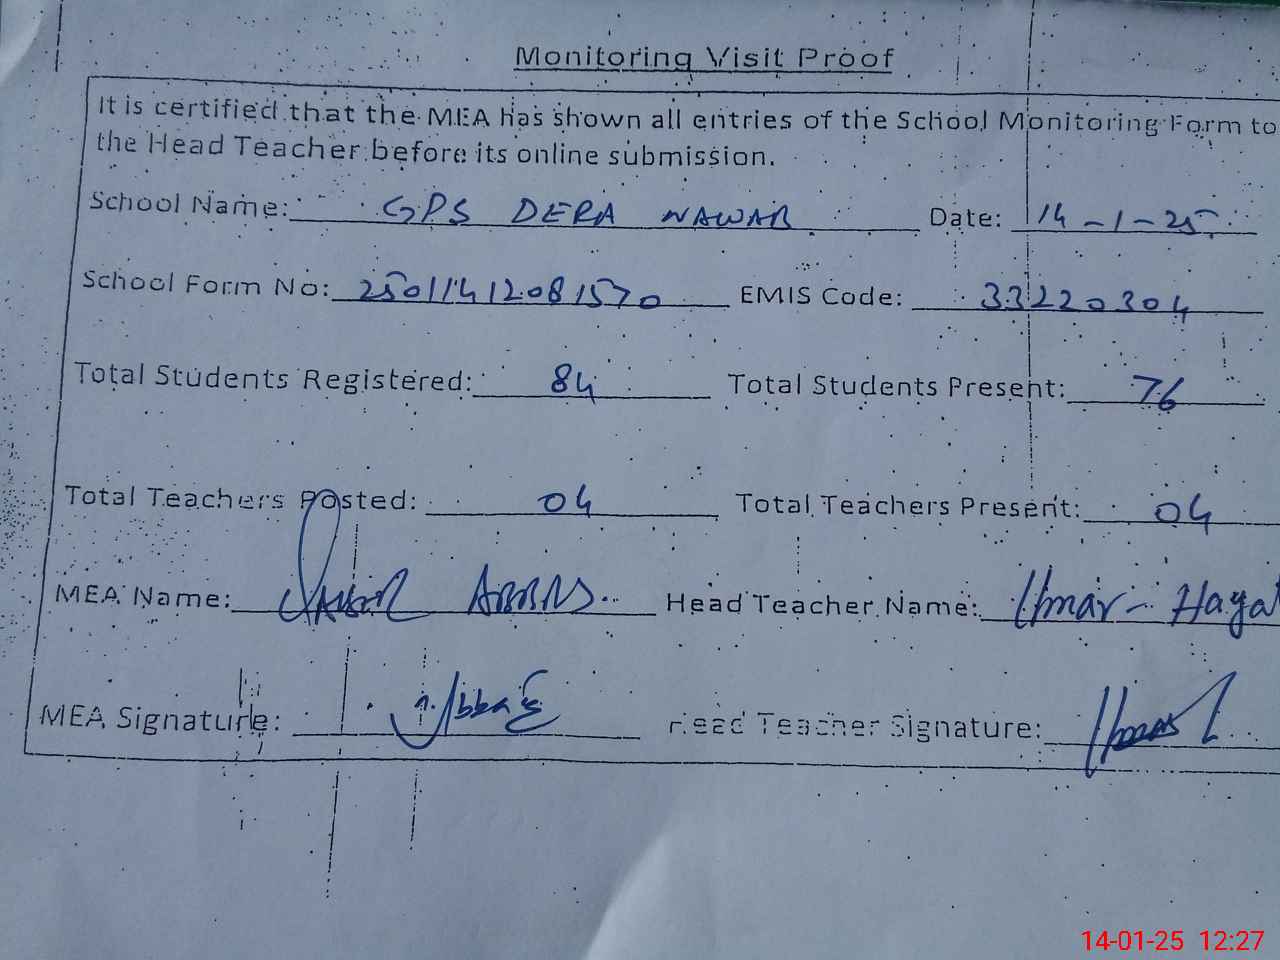 Monitoring Visit Proof
It is certified that the MEA has shown all entries of the School Monitoring Form to
the Head Teacher before its online submission.
School Name: GPS DERA NAWAB Date: 14-1-25
School Form No: 25011412081570 EMIS Code: 33220304
Total Students Registered: 84 Total Students Present: 76
Total Teachers Posted: 04 Total Teachers Present: 04
MEA Name: ABBAS Head Teacher Name: Umar-Hayat
MEA Signature: Head Teacher Signature:
14-01-25 12:27